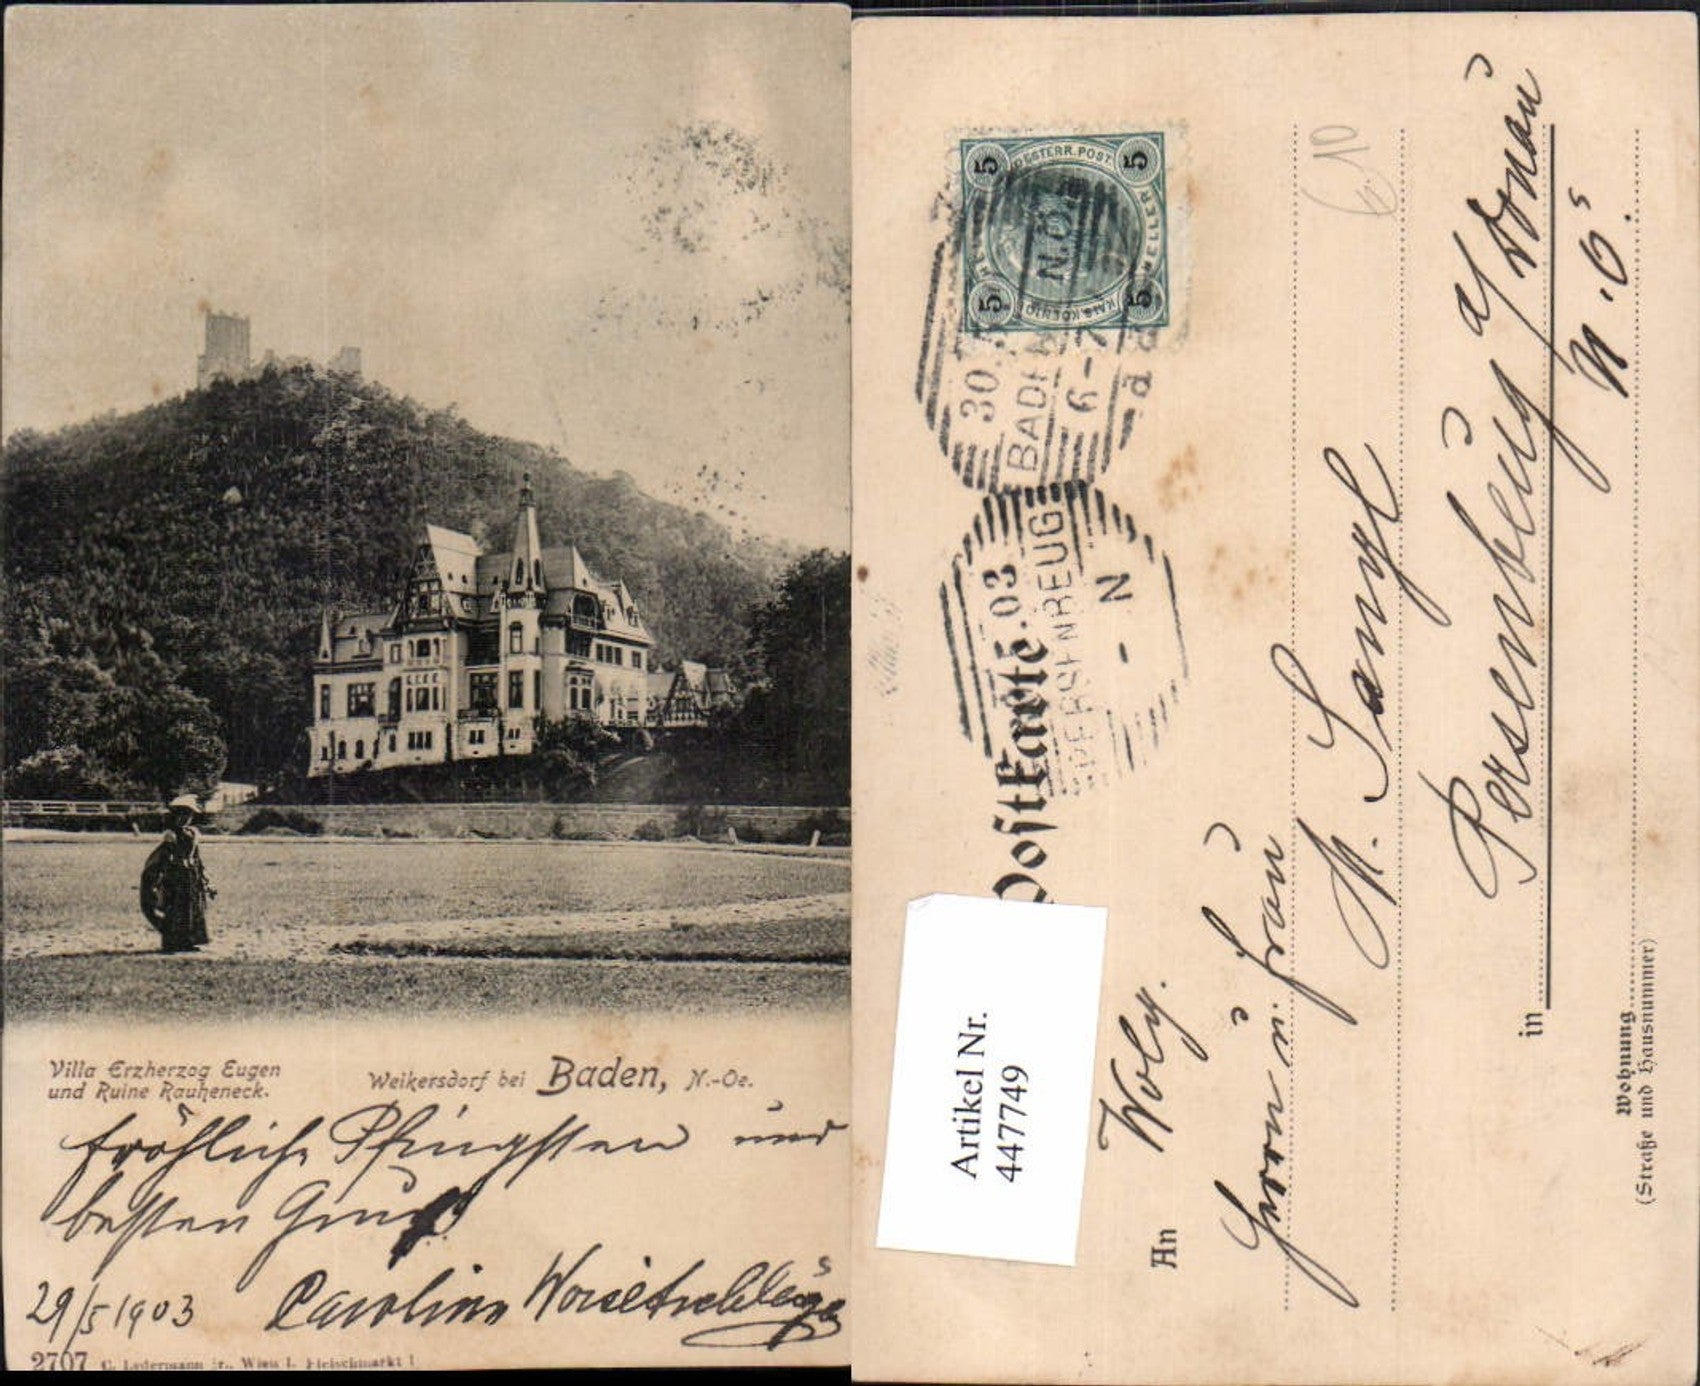 Villa Erzherzog Eugen
und Ruine Rauheneck.
Weikersdorf bei Baden, N.-Oe.
fröhliche Pfingsten und
besten Gruß
29/5 1903 Caroline
2707 C. Ledermann jr., Wien I. Fleischmarkt 1
5 OESTERR. POST. 5
HELLER
5 KAIS. KOENIG 5
N.Ö.
30.
BADEN
6-7
5.03
PERSENBEUG
- N
Postkarte
Artikel Nr.
447749
10
An
Herrn u. Frau
in Persenbeug a/ Donau
N.Ö.
Wohnung
(Straße und Hausnummer)